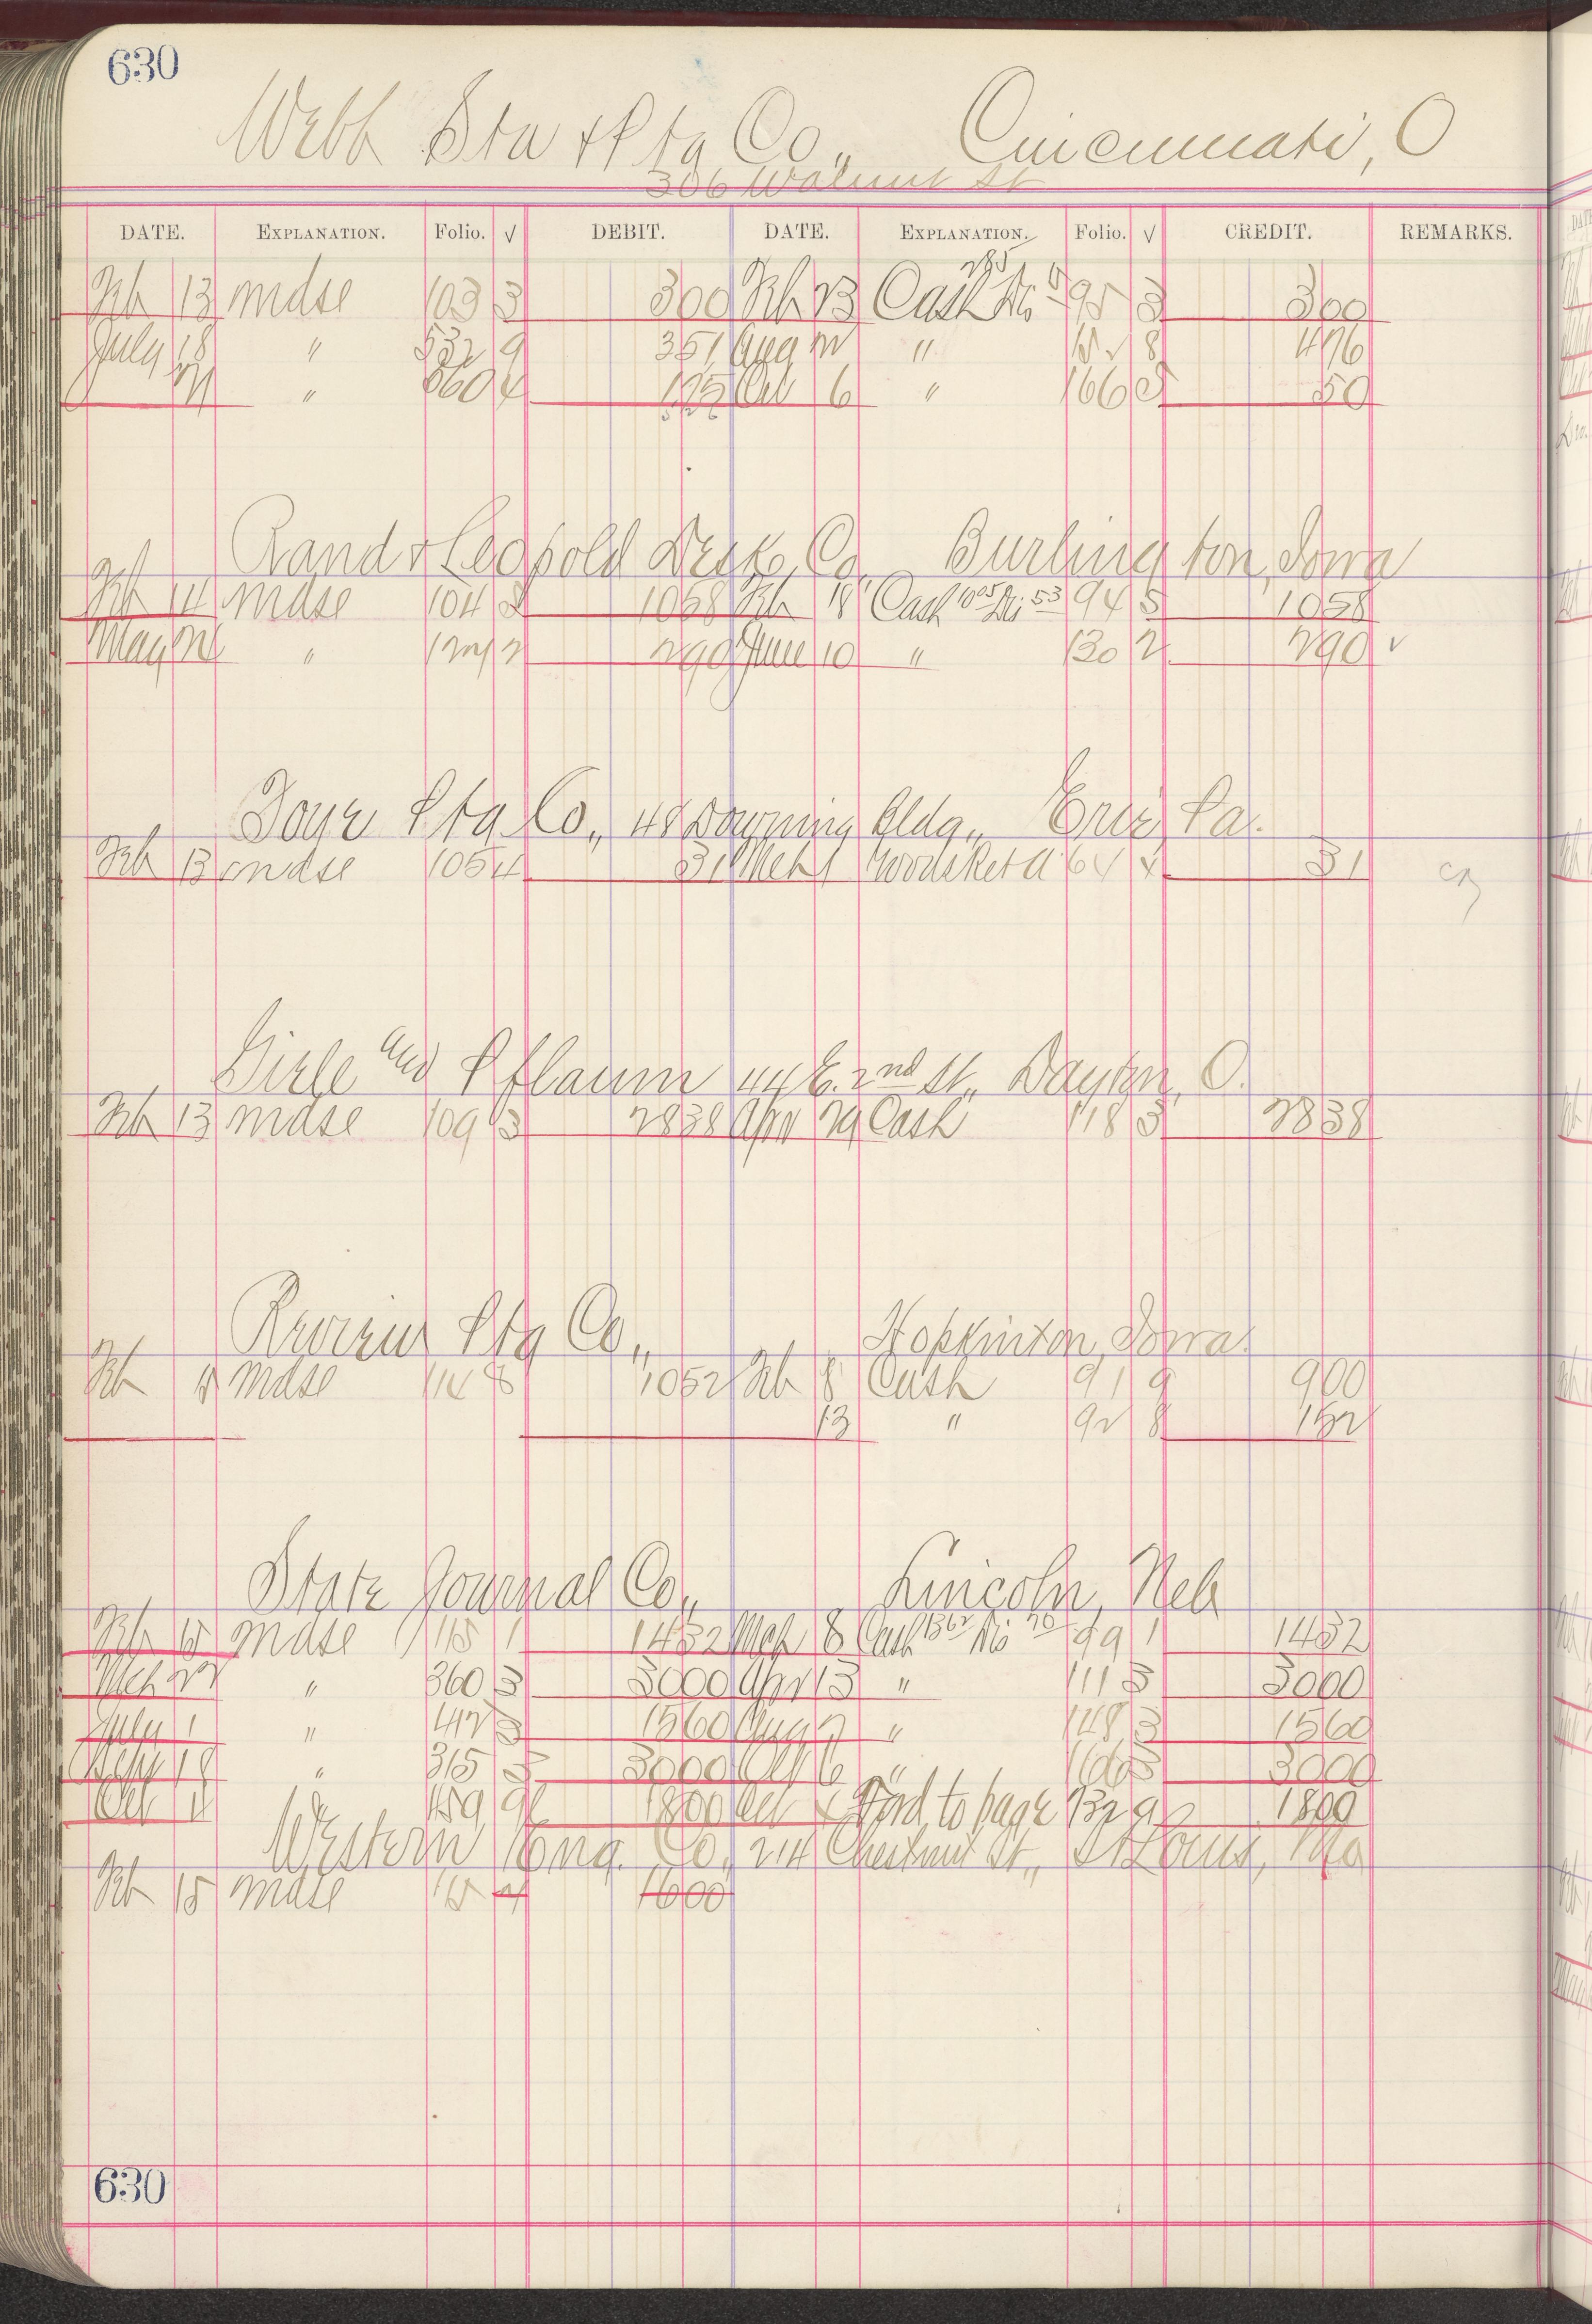 630
Webb Sta & Ptg Co., Cincinnati, O
306 Walnut St
DATE. EXPLANATION. Folio. √ DEBIT. DATE. EXPLANATION. Folio. √ CREDIT. REMARKS.
Feb 13 mdse 103 3 300 Feb 23 Cash 285 Dis 15 95 3 300
July 18 " 532 9 351 Aug " 8 476
" 560 4 125 Oct 6 " 166 50
526
Rand & Leopold Desk Co. Burlington, Iowa
Feb 14 mdse 104 2 1058 Feb 18 Cash 1005 Dis 53 94 5 1058
May " 2 290 June 10 " 130 2 290 √
Ptg Co., 48 Downing Bldg., Erie, Pa.
Feb 13 mdse 105 4 31 Mch 1 64 4 31
and Pflaum 44 E. 2nd St., Dayton, O.
Feb 13 mdse 109 3 2838 Apr 29 Cash 118 3 2838
Review Ptg Co., Hopkinton, Iowa.
Feb mdse 114 8 1052 Feb 8 Cash 91 9 900
13 " 92 8 152
State Journal Co., Lincoln, Neb
Feb 15 mdse 115 1 1432 Mch 8 Cash 1362 Dis 70 99 1 1432
Mch 22 " 360 3 3000 Apr 13 " 111 3 3000
July 1 " 412 3 1560 Aug 7 " 148 3 1560
Sept 18 " 315 3 3000 Oct 6 " 166 3 3000
Oct 4 " 159 9 1800 Oct 4 Ford to page 732 9 1800
Western Eng. Co., 214 Chestnut St., St Louis, Mo
Feb 15 mdse 115 4 1600
630